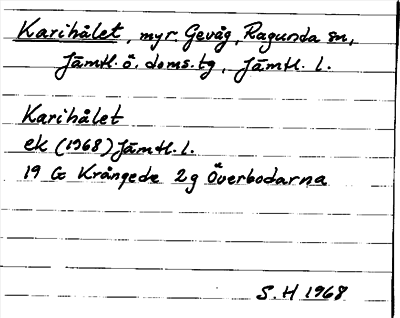 Karihålet, myr. Gevåg, Ragunda sn,
Jämtl. ö. doms.tg, Jämtl. l.
Karihålet
ek (1968) Jämtl. l.
19 G Krångede 2g Överbodarna
S.H 1968